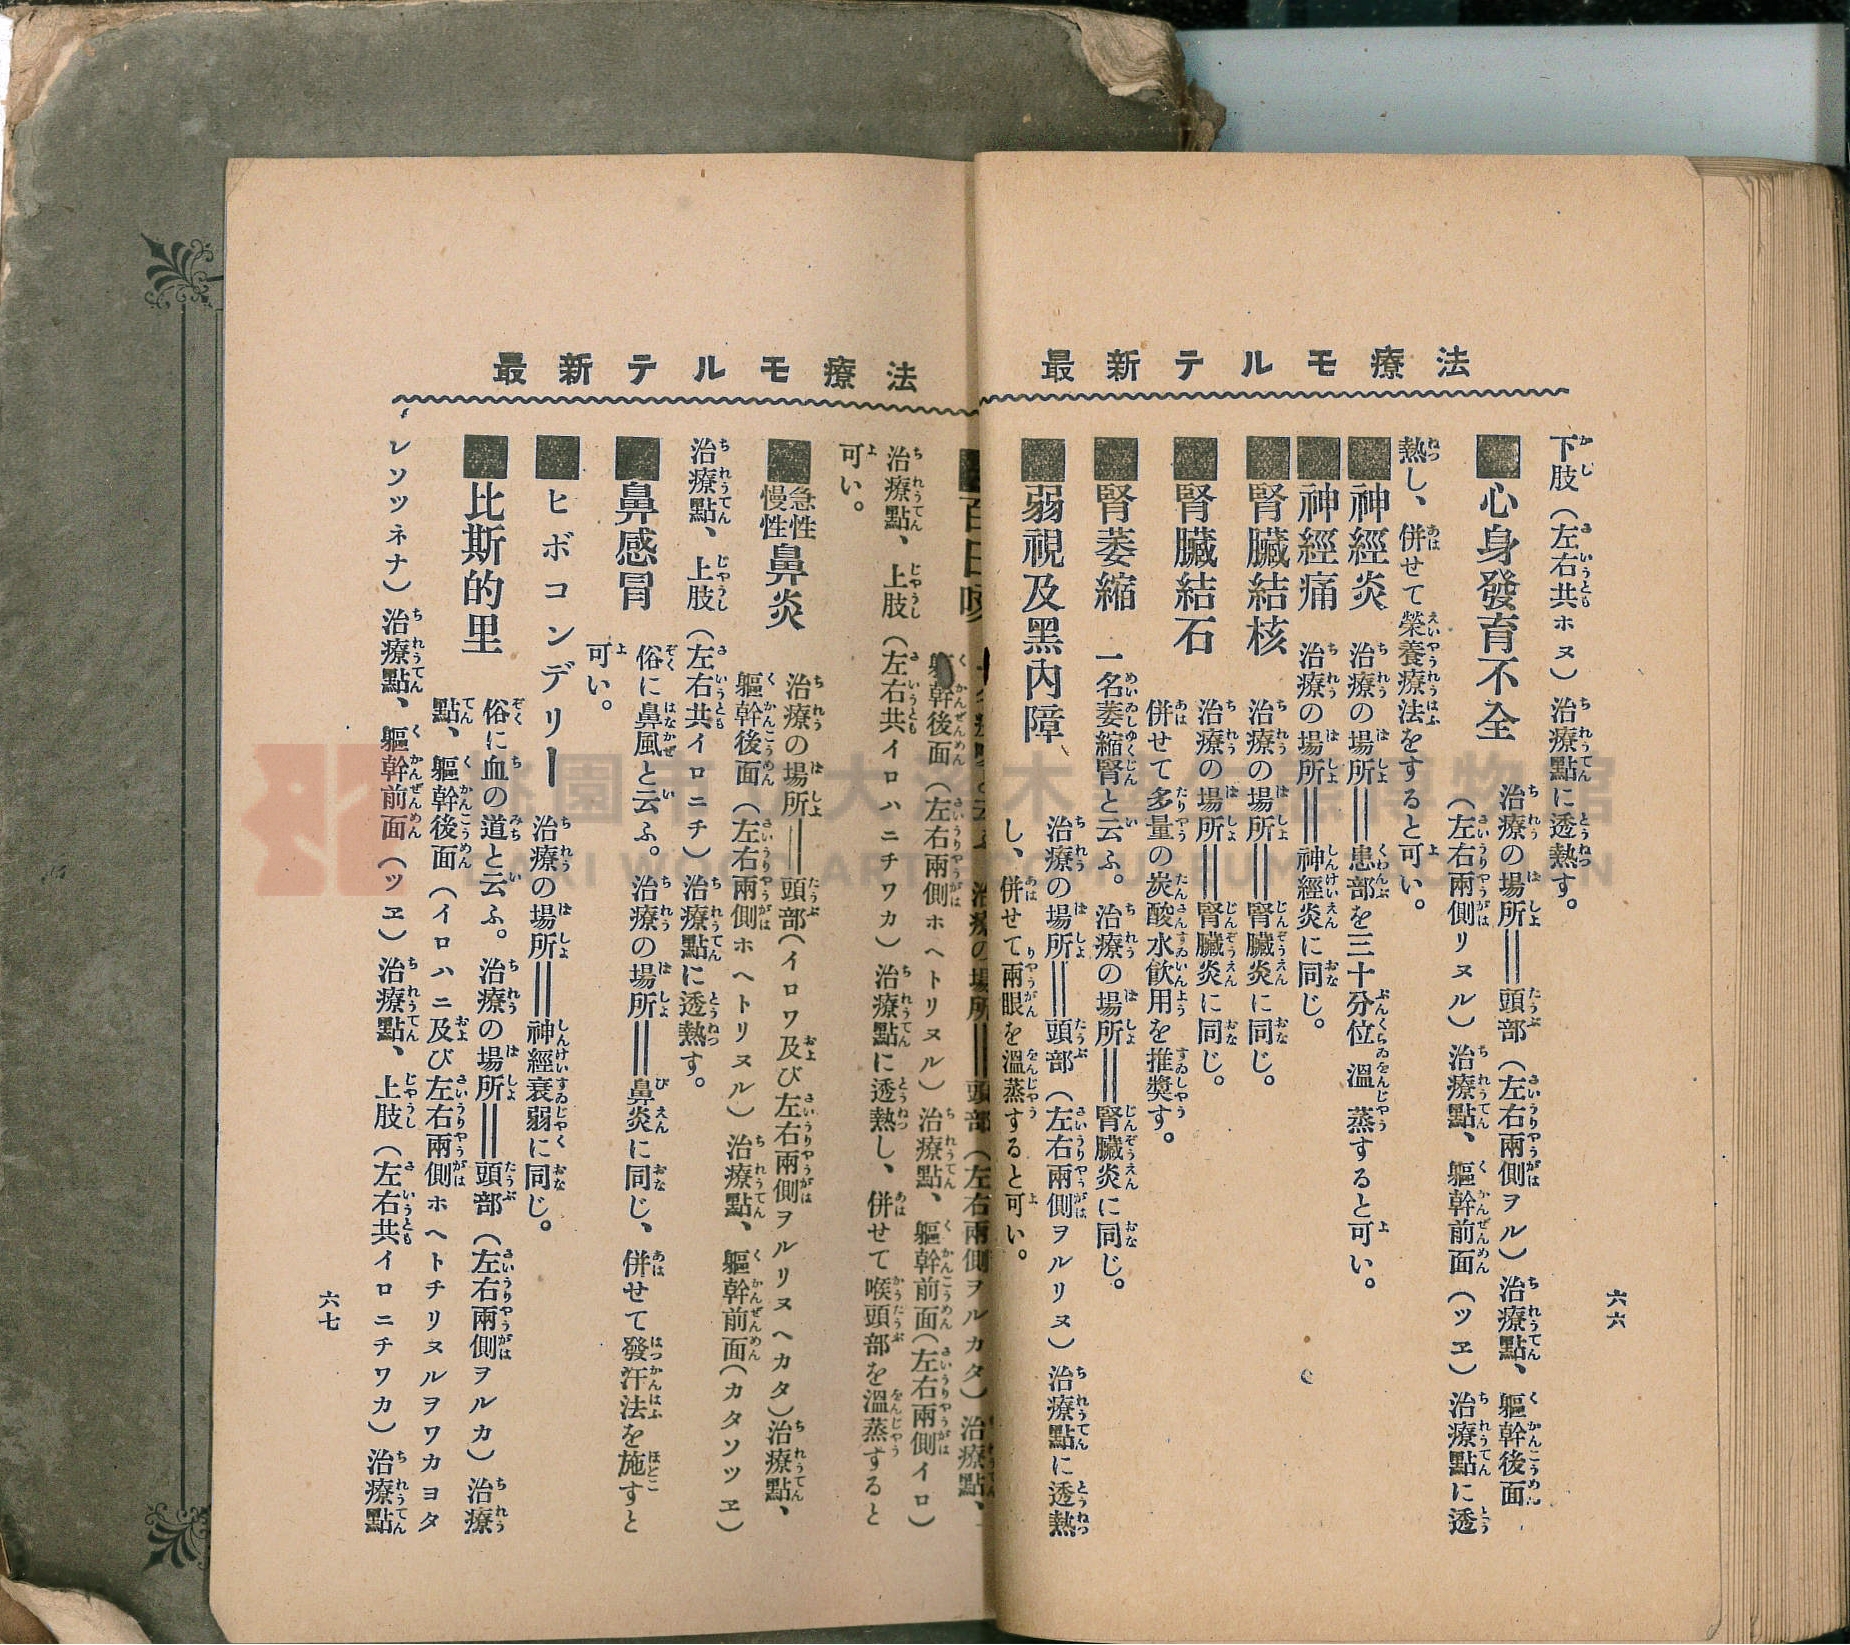 最新テルモ療法
下肢（左右共ホヌ）治療點に透熱す。
■心身發育不全　治療の場所＝＝頭部（左右兩側ヲル）治療點、軀幹後面
（左右兩側リヌル）治療點、軀幹前面（ツヱ）治療點に透
熱し、併せて榮養療法をすると可い。
■神經炎　治療の場所＝＝患部を三十分位溫蒸すると可い。
■神經痛　治療の場所＝＝神經炎に同じ。
■腎臟結核　治療の場所＝＝腎臟炎に同じ。
■腎臟結石　治療の場所＝＝腎臟炎に同じ。
併せて多量の炭酸水飮用を推奬す。
■腎萎縮　一名萎縮腎と云ふ。治療の場所＝＝腎臟炎に同じ。
■弱視及黑內障　治療の場所＝＝頭部（左右兩側ヲルリヌ）治療點に透熱
し、併せて兩眼を溫蒸すると可い。
六六
最新テルモ療法
■百日咳　治療の場所＝＝頭部（左右兩側ヲルカタ）治療點、
軀幹後面（左右兩側ホヘトリヌル）治療點、軀幹前面（左右兩側イロ）
治療點、上肢（左右共イロハニチワカ）治療點に透熱し、併せて喉頭部を溫蒸すると
可い。
■急性慢性鼻炎　治療の場所＝＝頭部（イロワ及び左右兩側ヲルリヌヘカタ）治療點、
軀幹後面（左右兩側ホヘトリヌル）治療點、軀幹前面（カタソツヱ）
治療點、上肢（左右共イロニチ）治療點に透熱す。
■鼻感冒　俗に鼻風と云ふ。治療の場所＝＝鼻炎に同じ、併せて發汗法を施すと
可い。
■ヒボコンデリー　治療の場所＝＝神經衰弱に同じ。
■比斯的里　俗に血の道と云ふ。治療の場所＝＝頭部（左右兩側ヲルカ）治療
點、軀幹後面（イロハニ及び左右兩側ホヘトチリヌルヲワカヨタ
レソツネナ）治療點、軀幹前面（ツヱ）治療點、上肢（左右共イロニチワカ）治療點
六七